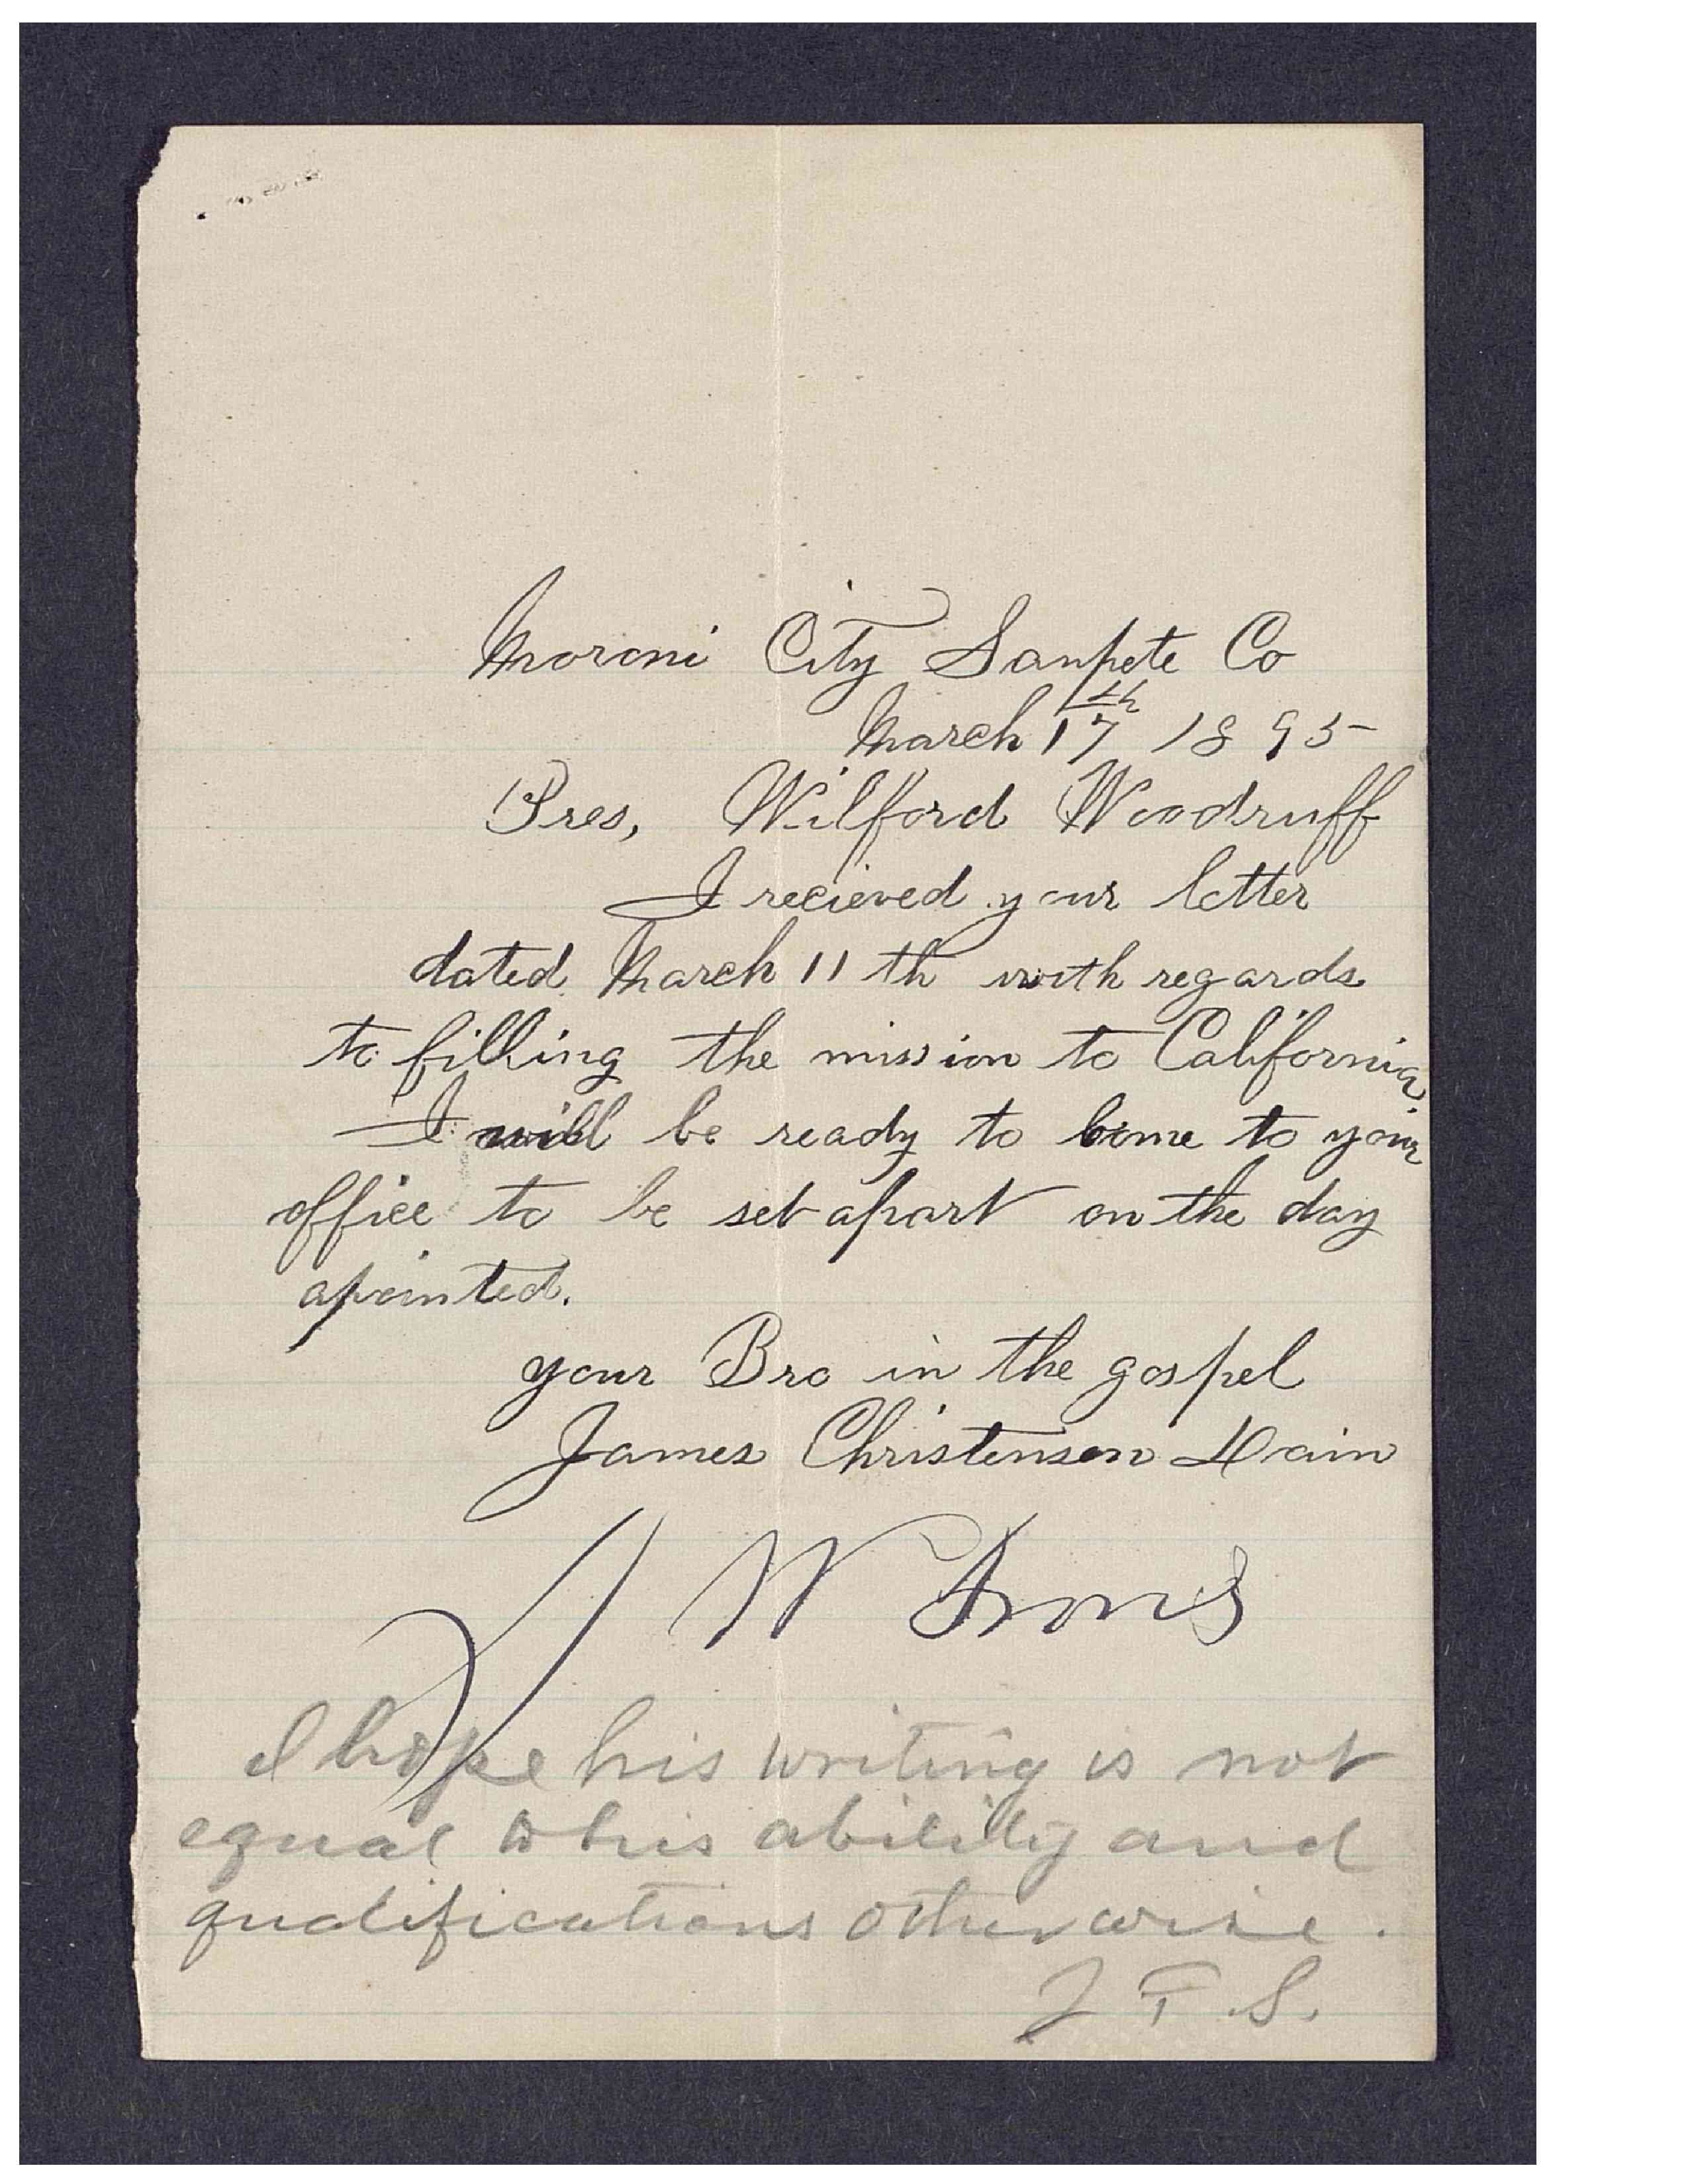 Moroni City Sanpete Co
March 17th 1895
Pres, Wilford Woodruff
I recieved your letter
dated March 11 th with regards
to filling the mission to California
I will be ready to come to your
office to be set apart on the day
apointed.
your Bro in the gospel
James Christensen
J W Irons
I hope his writing is not
equal to his ability and
qualifications otherwise.
J F. S.